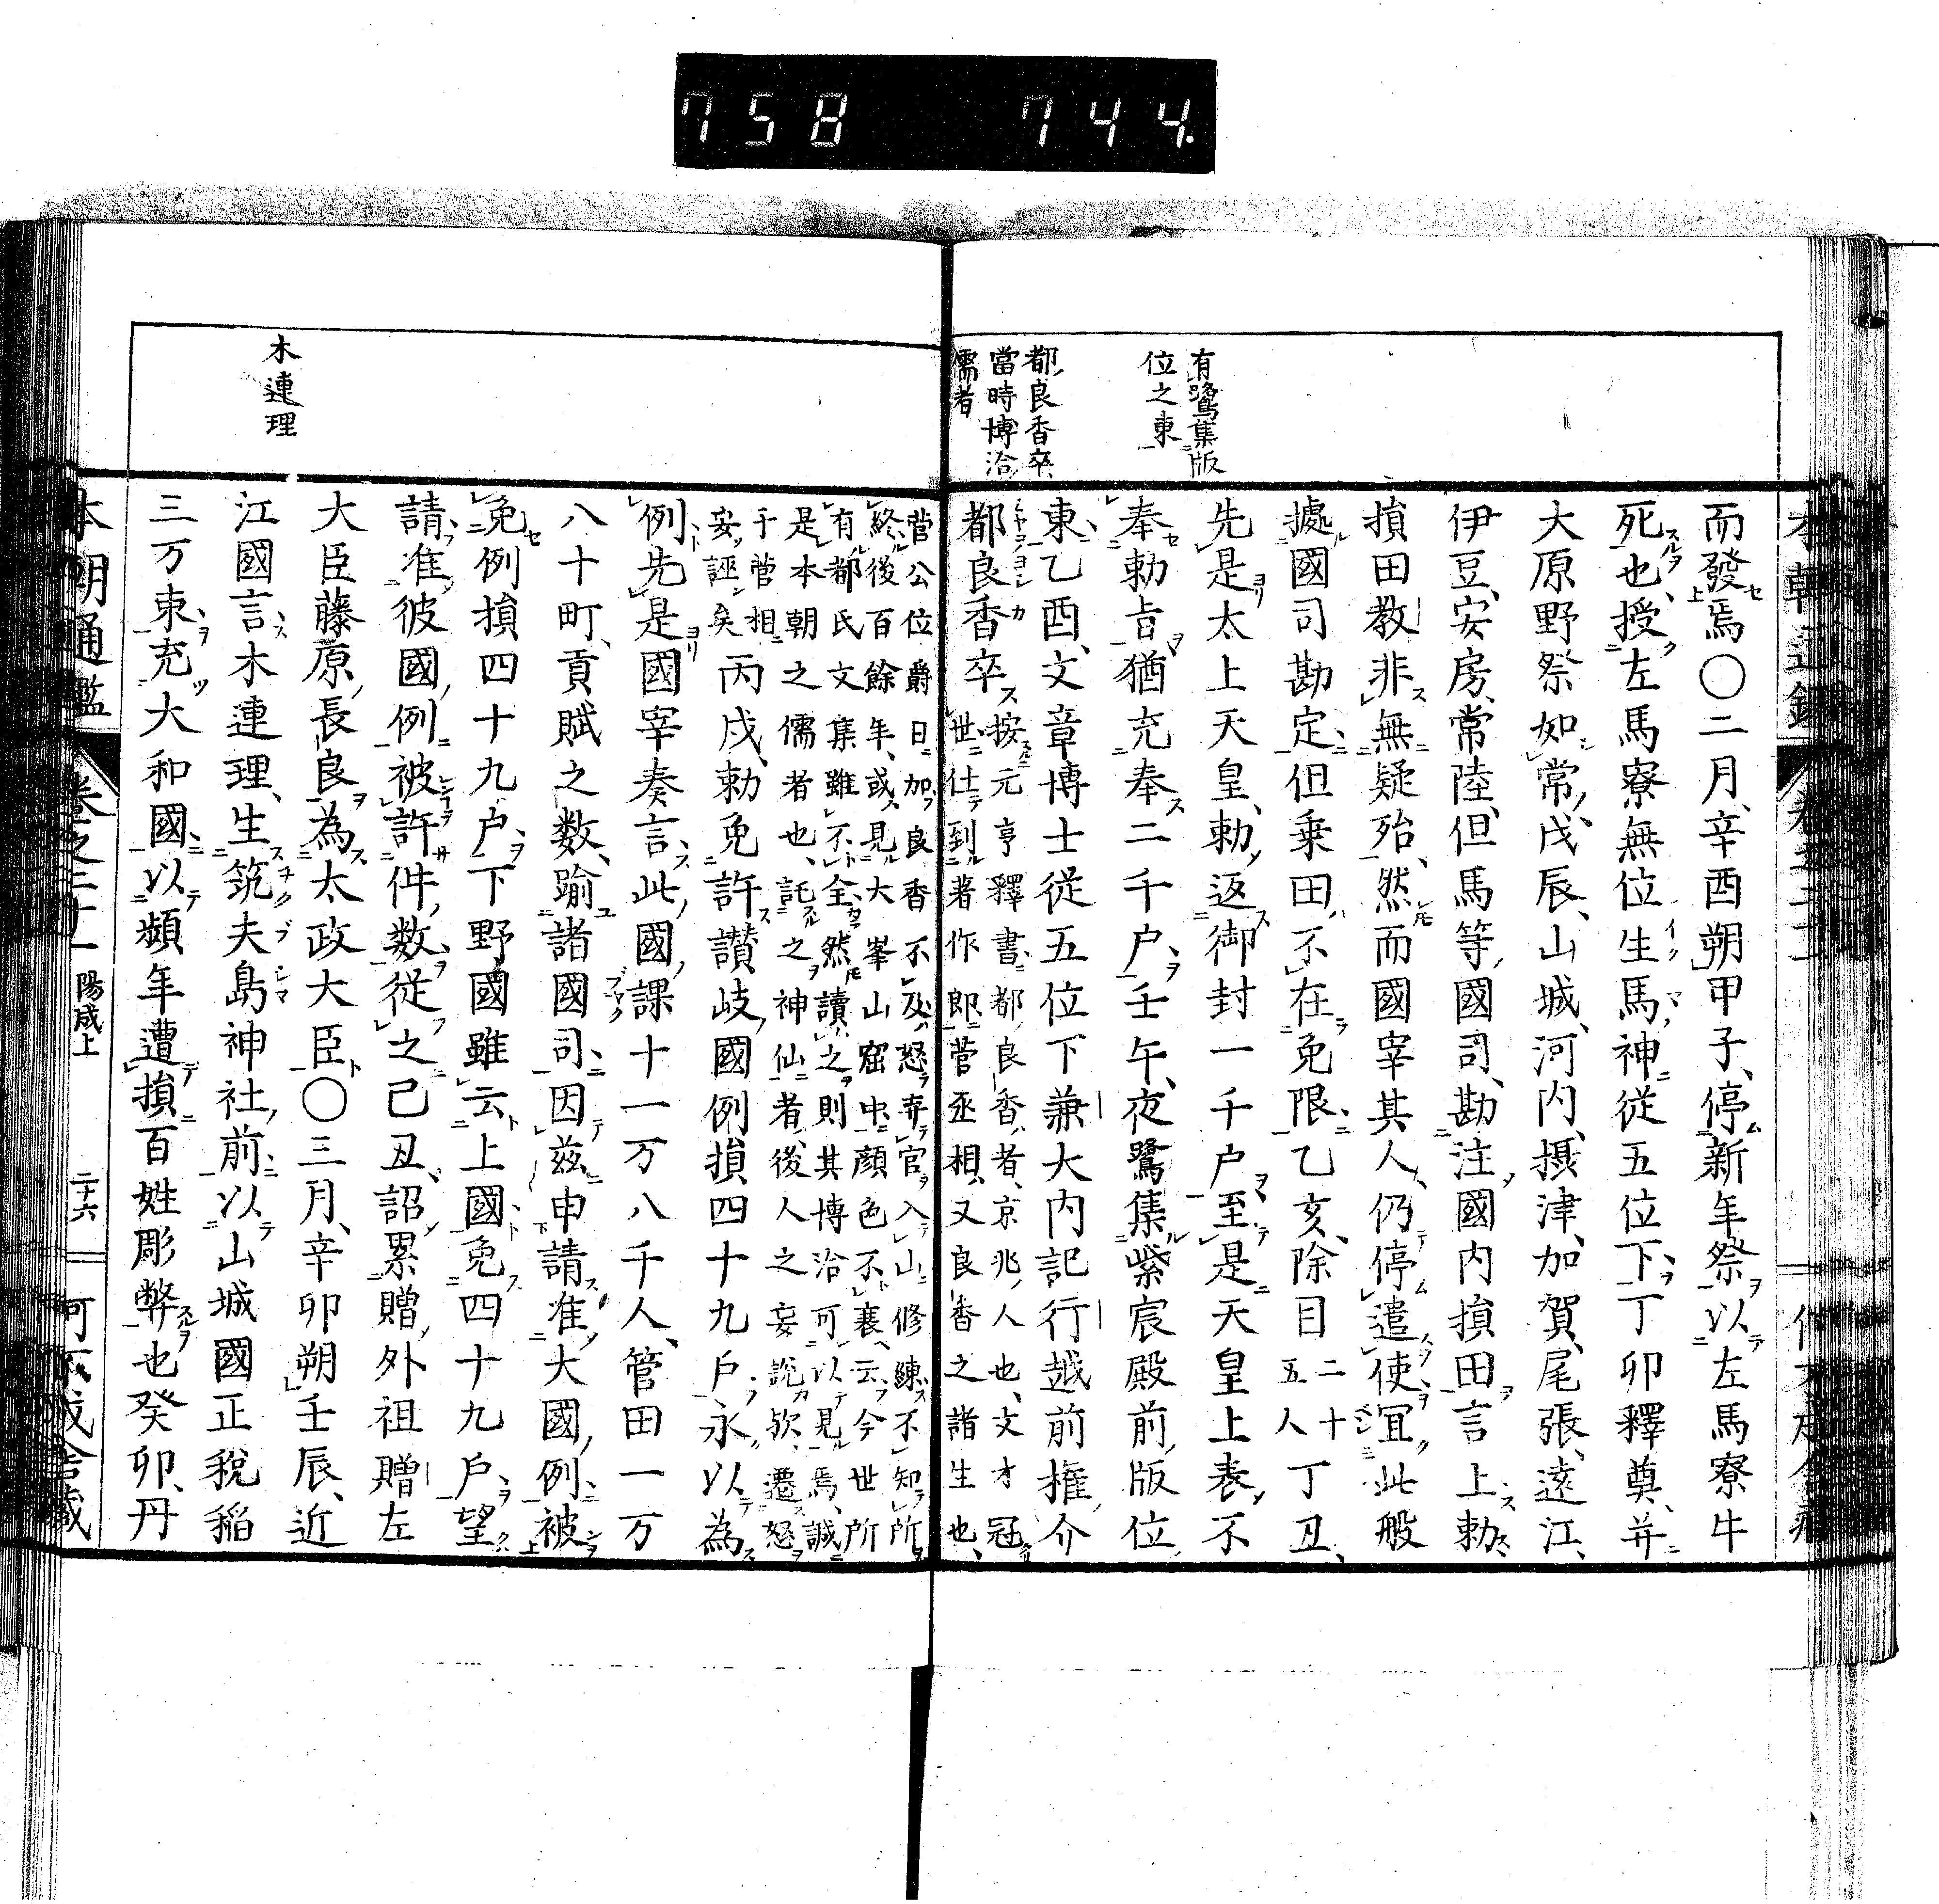 758 744.
有鷺集版
位之東
都良香卒
當時博洽
儒者
而發焉〇二月辛酉朔甲子停新年祭以左馬寮牛
死也授左馬寮無位生馬神從五位下丁卯釋奠并
大原野祭如常戊辰山城河内摂津加賀尾張遠江
伊豆安房常陸但馬等國司勘注國内損田言上勅
損田教非無疑殆然而國宰其人仍停遣使宜此般
據國司勘定但乗田不在免限乙亥除目二十五人丁丑
先是太上天皇勅返御封一千户至是天皇上表不
奉勅㫖猶充奉二千户壬午夜鷺集紫宸殿前版位
東乙酉文章博士從五位下兼大内記行越前権介
都良香卒
按元亨釋書都良香者京兆人也文才冠
世仕到著作郎菅丞相又良香之諸生也
菅公位爵日加良香不及怒弃官入山修練不知所
終後百餘年或見大峯山窟中顔色不衰云今世所
有都氏文集雖不全然讀之則其博洽可以見焉誠
是本朝之儒者也託之神仙者後人之妄說欤遷怒
于菅相
妄誣矣
丙戌勅免許讃岐國例損四十九戸永以為
例先是國宰奏言此國課十一万八千人管田一万
八十町貢賦之数踰諸國司因茲申請准大國例被
免例損四十九户下野國雖云上國免四十九戸望
請准彼國例被許件数從之己丑詔累贈外祖贈左
大臣藤原長良為太政大臣〇三月辛卯朔壬辰近
江國言木連理生筑夫島神社前以山城國正税稲
三万束充大和國以頻年遭損百姓彫弊也癸卯丹
木連理
本朝通鑑 卷之二十一 陽成上 二十六